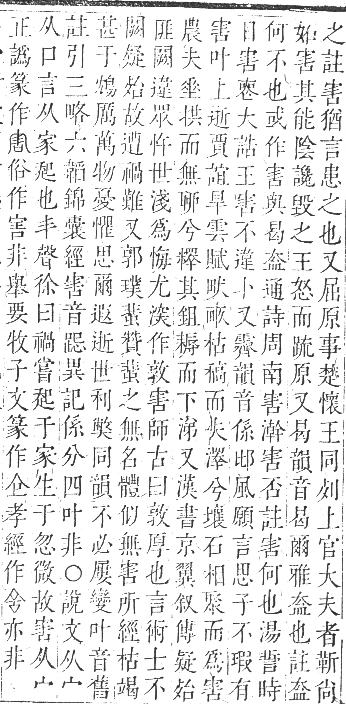 之註害猶言患之也又屈原事楚懷王同列上官大夫者靳尚
始害其能陰讒毀之王怒而踈原又曷韻音曷爾雅盍也註盍
何不也或作害與曷盍通詩周南害澣害否註害何也湯誓時
日害喪大誥王害不違卜又霽韻音係邶風願言思子不瑕有
害叶上逝賈誼旱雲賦畎畝枯槁而失澤兮壤石相聚而爲害
農夫垂拱而無聊兮釋其鉏耨而下涕又漢書京翼敘傳疑始
匪闕違眾忤世淺爲悔尤深作敦害師古曰敦厚也言術士不
闕疑殆故遭禍難又郭璞蜚贊蜚之無名體似無害所經枯竭
甚于鴆厲萬物憂懼思爾遐逝世利獘同韻不必屢變叶音舊
註引三略六韜錦囊經害音翯異記係分四叶非○說文从宀
从口言从家起也丯聲徐曰禍嘗起于家生于忽微故害从宀
正譌篆作𡧱俗作害非舉要牧子文篆作仚孝經作㑹亦非